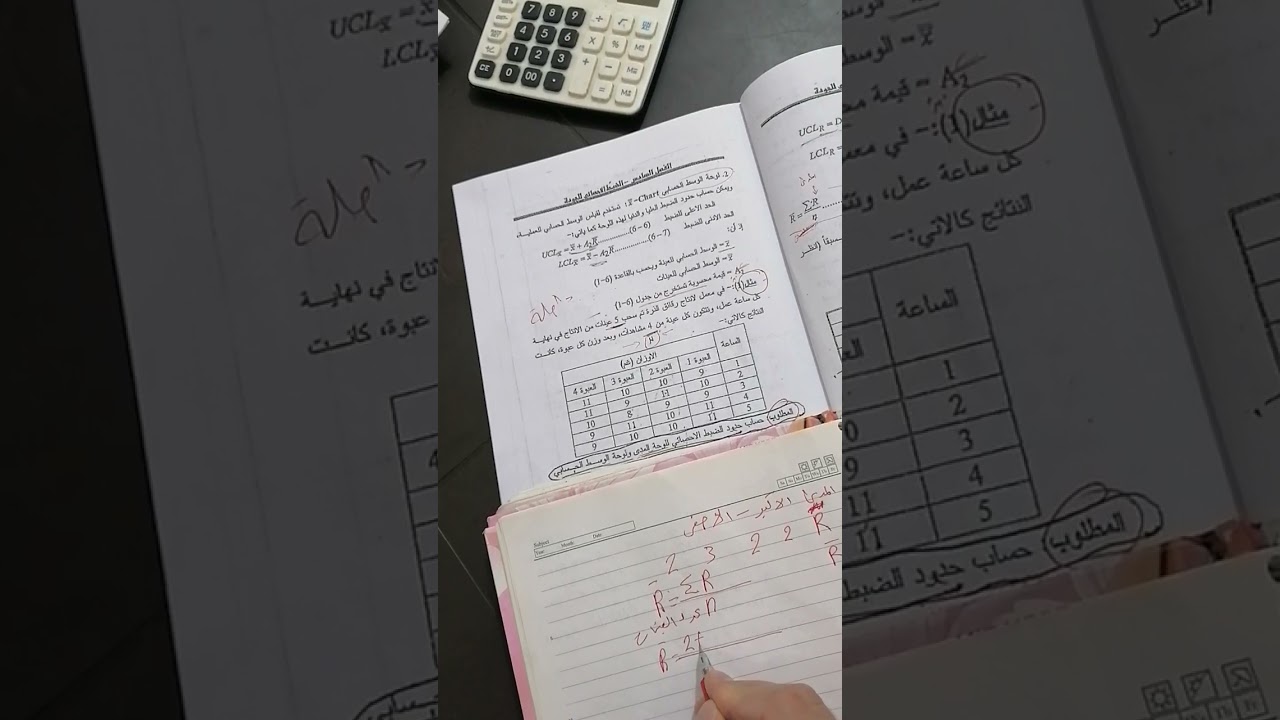 الفصل السادس – الضبط الاحصائي للجودة
2. لوحة الوسط الحسابي X̄-Chart: تستخدم لقياس الوسط الحسابي للعملية،
ويمكن حساب حدود الضبط العليا والدنيا لهذه اللوحة كما يأتي:-
الحد الاعلى للضبط UCLx̄ = x̿ + A₂R̄ ..........(6-6)
الحد الادنى للضبط LCLx̄ = x̿ − A₂R̄ ..........(6-7)
اذ أن:
x̄ = الوسط الحسابي للعينة ويحسب بالقاعدة (6-1)
x̿ = الوسط الحسابي للعينات
A₂ = قيمة محسوبة تستخرج من جدول (6-1)
مثال(1):- في معمل لانتاج رقائق الذرة تم سحب 5 عينات من الانتاج في نهاية
كل ساعة عمل، وتتكون كل عينة من 4 مشاهدات، وبعد وزن كل عبوة، كانت
النتائج كالاتي:-
الساعة الاوزان (غم)
العبوة 1 العبوة 2 العبوة 3 العبوة 4
1 9 10 10 11
2 10 11 9 11
3 9 9 8 10
4 11 10 11 9
5 11 10 10 9
المطلوب: حساب حدود الضبط الاحصائي للوحة المدى ولوحة الوسط الحسابي
UCL_R = D
LCL_R =
R̄ = ΣR
n
Subject
Year Month Date
الاكبر – الاصغر
R 2 2 3 2
R̄ = ΣR
n عدد العينات
R̄ = 2+